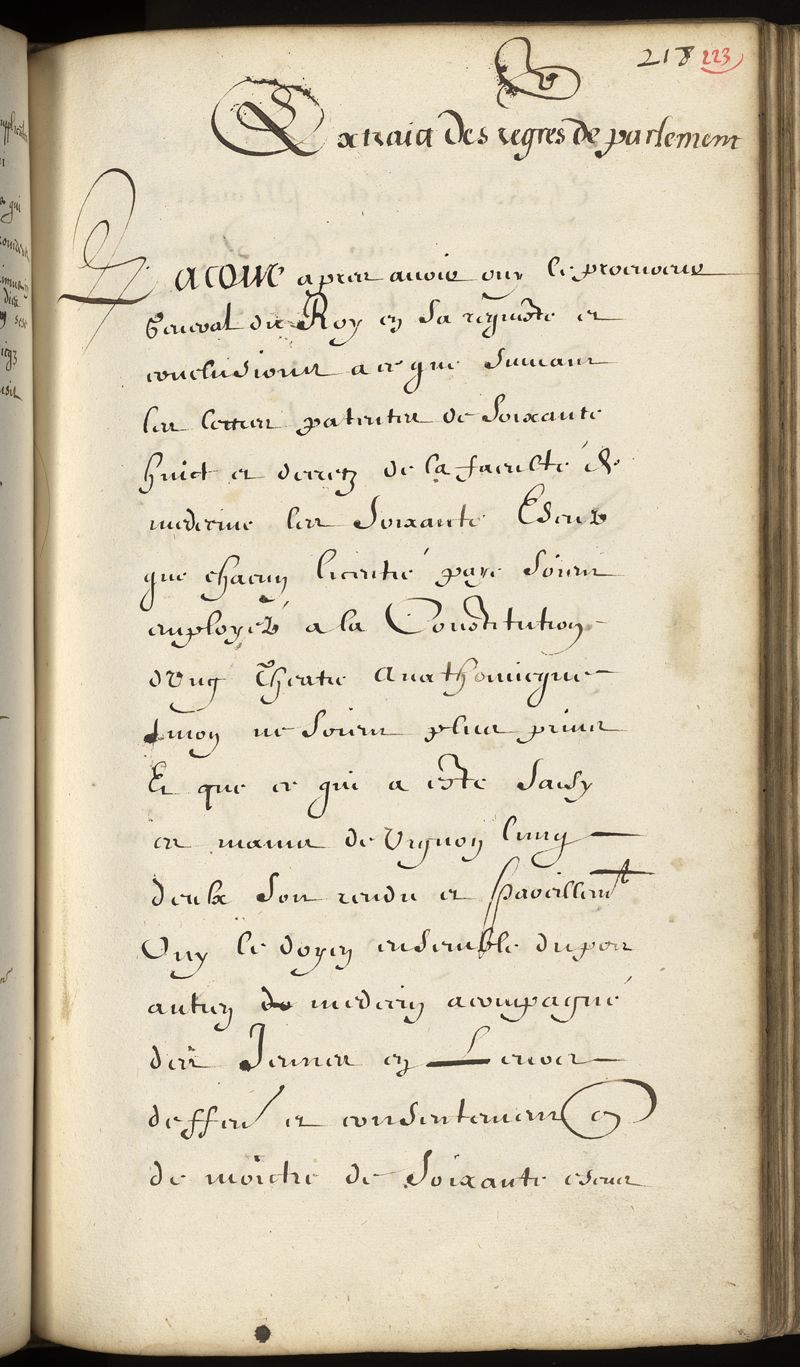 218 223
Extraict des regres de parlement
La cour apres avoir ouy le procureur
General du Roy en sa requeste et
conclusions a ce que suivant
les lettres patentes de soixante
huict et decretz de la faculté de
medecine les soixante Escus
que chacun licentié paye soient
employés a la Constitution
d'Ung Theatre Anathomicque
sinon ne soient plus prins
Et que ce qui a esté saisy
es mains de Vignon l'ung
deulx soit rendu et
Ouy le doyen ensemble dupon
antien medecin acompagné
des en
deffen et consentement en
de moictie de soixante escus